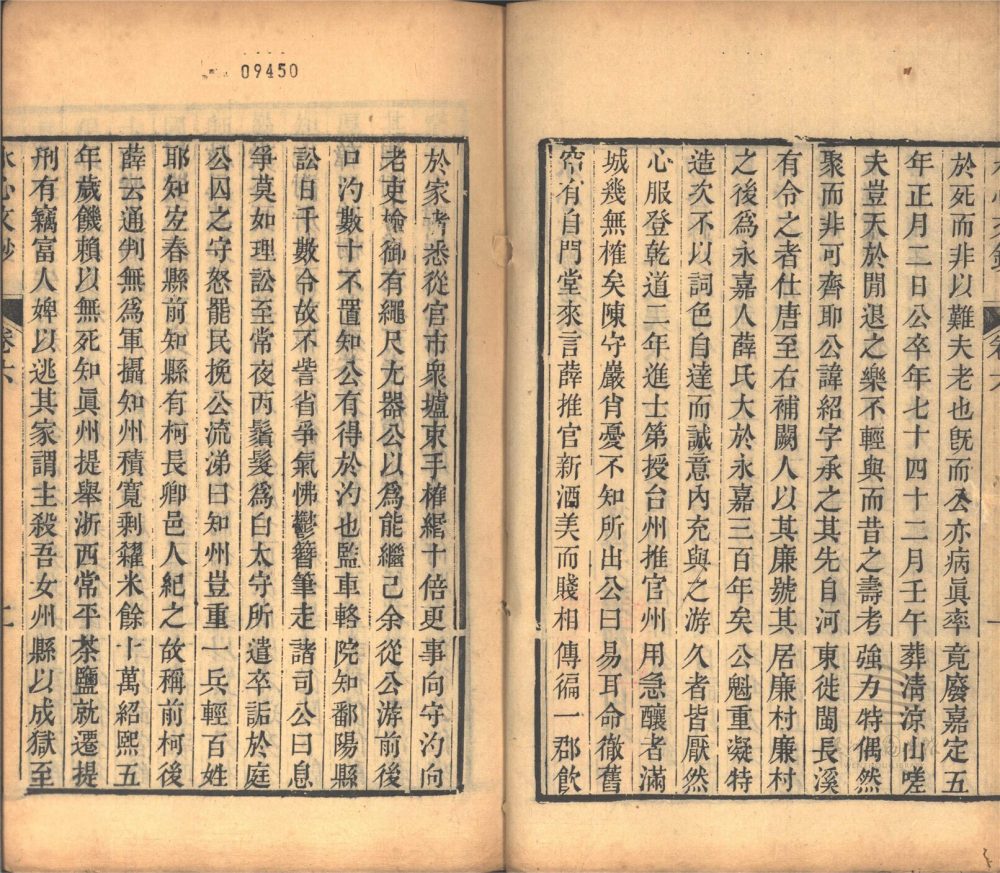 09450
於死而非以難夫老也旣而公亦病眞率竟廢嘉定五
年正月二日公卒年七十四十二月壬午葬淸涼山嗟
夫豈天於閒退之樂不輕與而昔之壽考強力特偶然
聚而非可齊耶公諱紹字承之其先自河東徙閩長溪
有令之者仕唐至右補闕人以其廉號其居廉村廉村
之後爲永嘉人薛氏大於永嘉三百年矣公魁重凝特
造次不以詞色自達而誠意內充與之游久者皆厭然
心服登乾道二年進士第授台州推官州用急釀者滿
城幾無榷矣陳守嚴肖憂不知所出公曰易耳命徹舊
帘有自門堂來言薛推官新酒美而賤相傳徧一郡飲
於家者悉從官市衆壚束手榷緡十倍更事向守汋向
老吏檢御有繩尺尢器公以爲能繼己余從公游前後
口汋數十不置知公有得於汋也監車輅院知鄱陽縣
訟日千數令故不訾省爭氣怫鬱簪筆走諸司公曰息
爭莫如理訟至常夜丙鬚髮爲白太守所遣卒詬於庭
公囚之守怒罷民挽公流涕曰知州豈重一兵輕百姓
耶知宜春縣前知縣有柯長卿邑人紀之故稱前柯後
薛云通判無爲軍攝知州積寬剩糴米餘十萬紹熙五
年歲饑賴以無死知眞州提舉浙西常平茶鹽就遷提
刑有竊富人婢以逃其家謂主殺吾女州縣以成獄至
水心文鈔 卷六